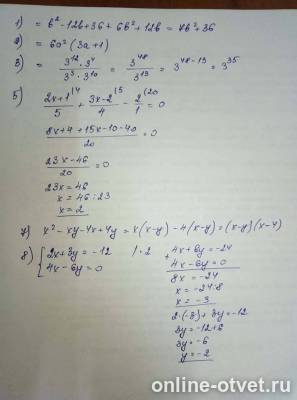 1) = b² - 12b + 36 + 6b² + 12b = 7b² + 36
2) = 6a² (3a + 1)
3) = 3¹² · 3⁴ / 3³ · 3¹⁰ = 3⁴⁸ / 3¹³ = 3⁴⁸⁻¹³ = 3³⁵
5)
2x+1 |⁴ / 5 + 3x-2 |⁵ / 4 - 2 |²⁰ / 1 = 0
8x+4+15x-10-40 / 20 = 0
23x-46 / 20 = 0
23x = 46
x = 46:23
x = 2
7) x² - xy - 4x + 4y = x(x-y) - 4(x-y) = (x-y)(x-4)
8) { 2x+3y = -12 | · 2
4x-6y = 0
+ 4x+6y = -24
4x-6y = 0
8x = -24
x = -24:8
x = -3
2·(-3) + 3y = -12
3y = -12+6
3y = -6
y = -2
online-otvet.ru